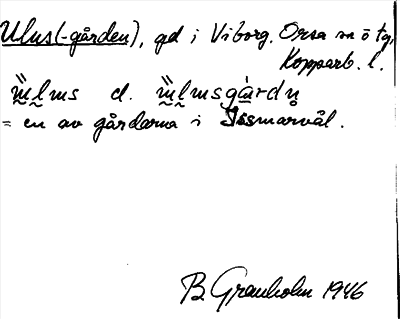 Ulus(-gården), gd i Viborg. Orsa sn ö tg,
Kopparb. l.
= en av gårdarna i Issmarvål.
B. Granholm 1946